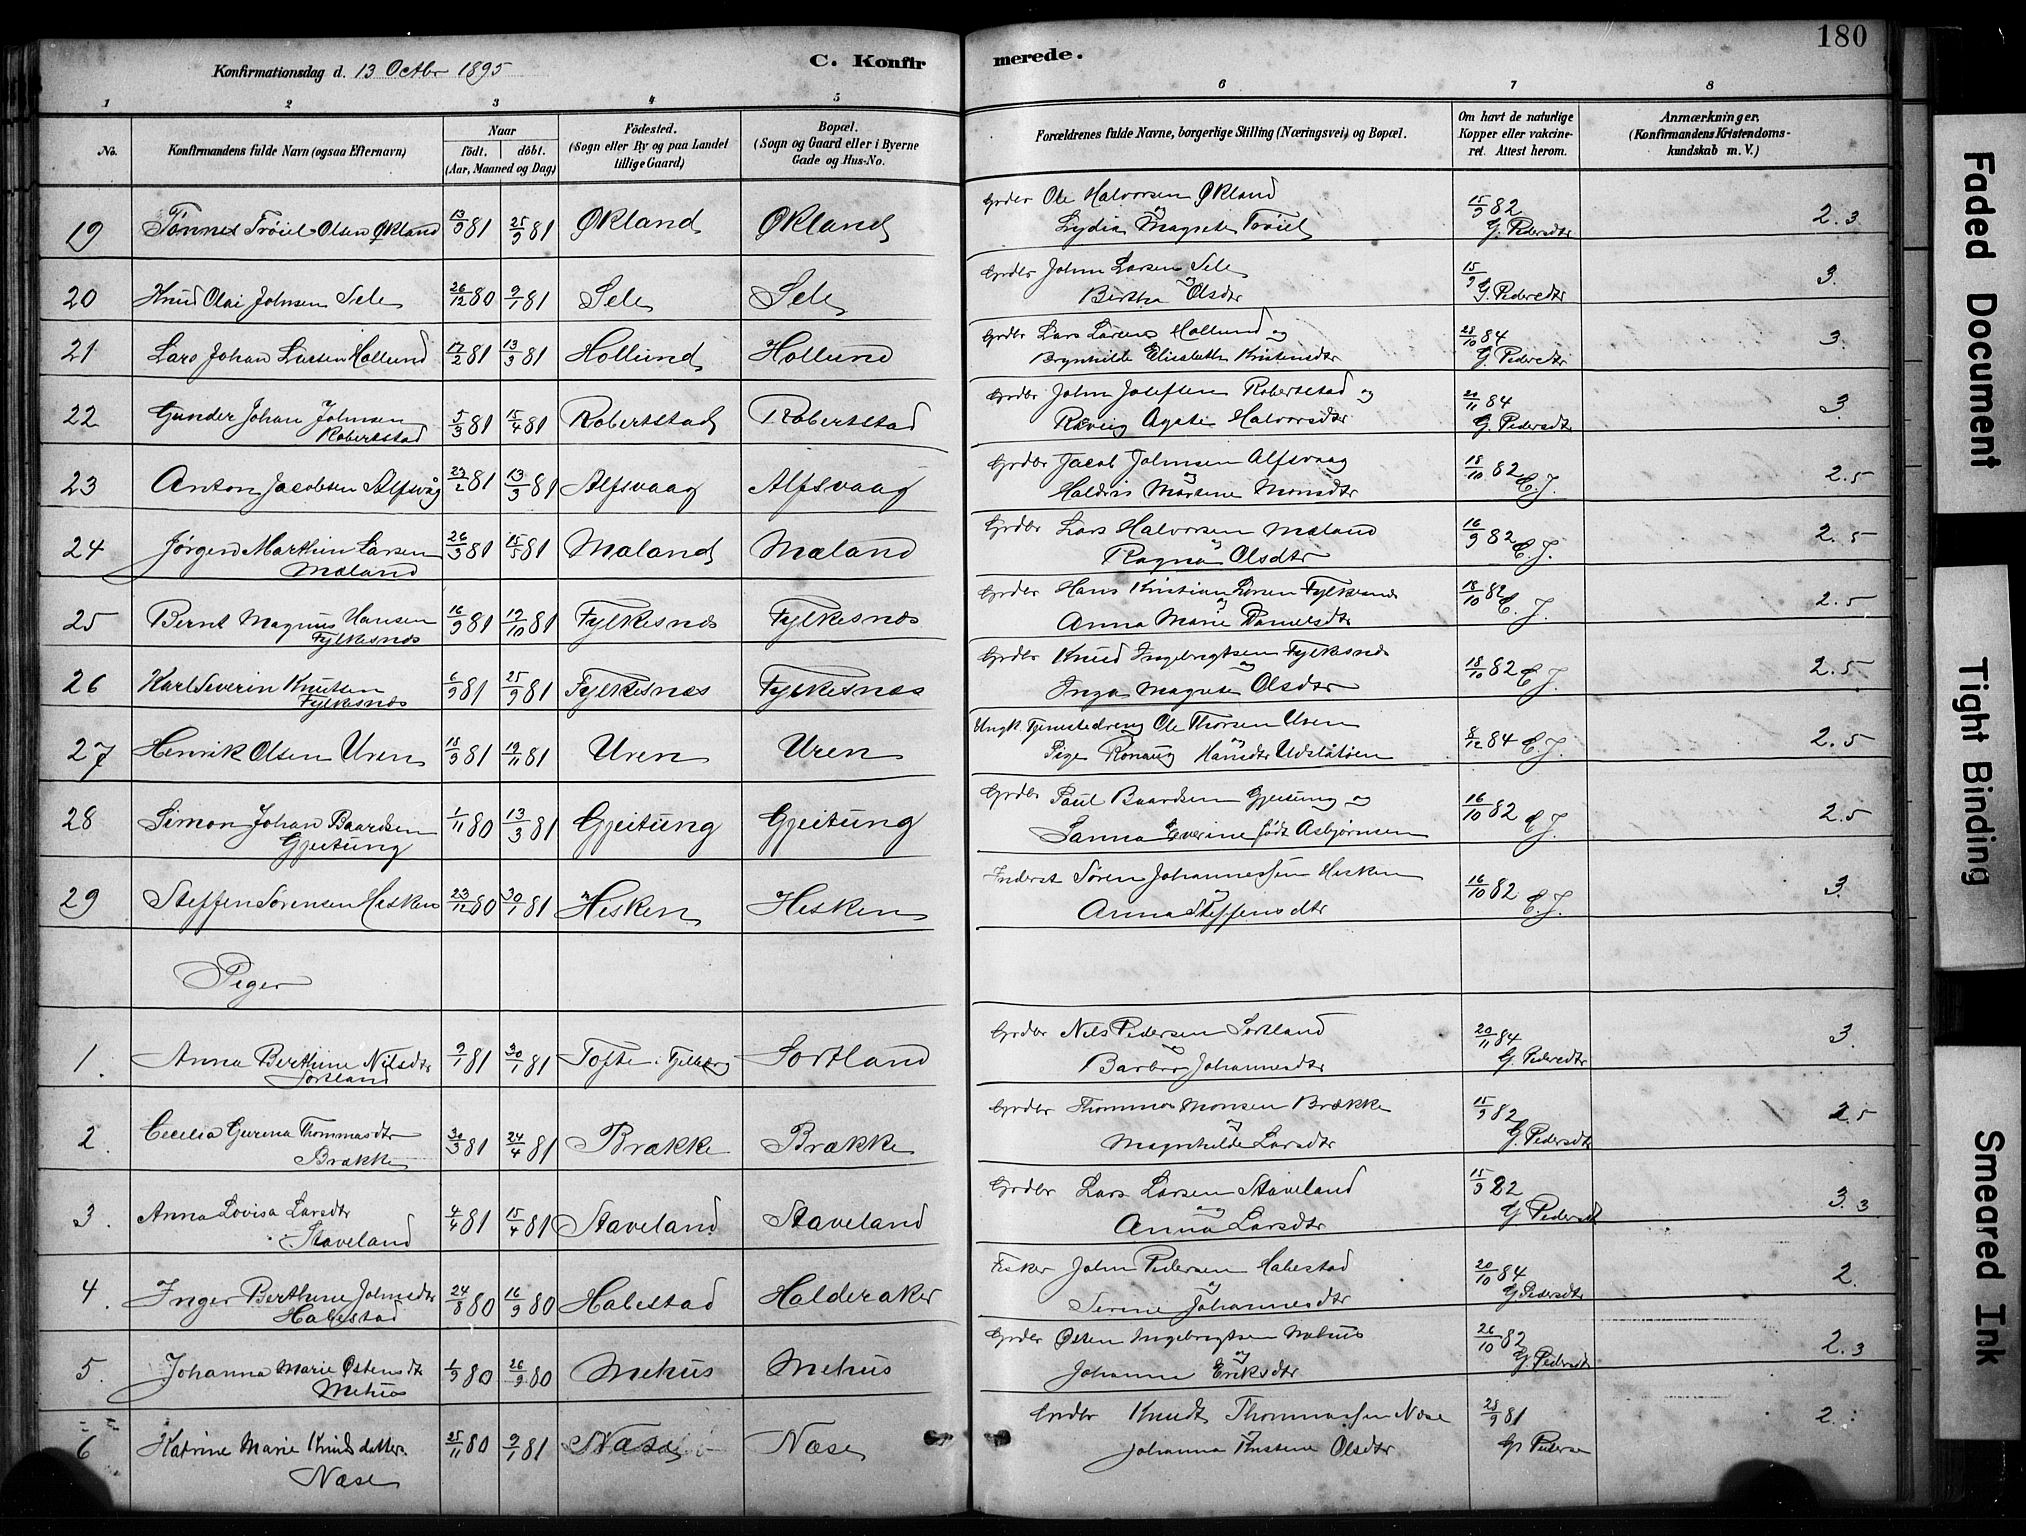 180
Konfirmationsdag d. 13 Octbr 1895
C. Konfirmerede.
1 2 3 4 5 6 7 8
No.
Konfirmandens fulde Navn (ogsaa Efternavn)
Naar
födt. döbt.
(Aar, Maaned og Dag)
Födested.
(Sogn eller By og paa Landet
tillige Gaard)
Bopæl.
(Sogn og Gaard eller i Byerne
Gade og Hus-No.
Forældrenes fulde Navne, borgerlige Stilling (Næringsvei) og Bopæl.
Om havt de naturlige
Kopper eller vakcine-
ret. Attest herom.
Anmærkninger.
(Konfirmandens Kristendoms-
kundskab m. V.)
19 Tönnes Tröiel Olsen Økland 13/9 81 25/9 81 Økland Økland Grdbr Ole Halvorsen Økland 15/9 82 2.3
og
Lydia Magrete Tröiel G. Pedersdtr
20 Knud Olai Johnsen Sele 26/12 80 9/1 81 Sele Sele Grdbr John Larsen Sele 15/9 3.
og
Bertha Olsdtr G. Pedersdtr
21 Lars Johan Larsen Hollund 17/2 81 13/3 81 Hollund Hollund Grdbr Lars Larsen Hollund og 28/10 84 3.
Brynhilde Elisabeth Kristensdtr G. Pedersdtr
22 Gunder Johan Johnsen 5/3 81 15/4 81 Robertstad Robertstad Grdbr John Josefsen Robertstad og 84 3.
Robertstad Agate Halvorsdtr G. Pedersdtr
23 Anton Jacobsen Alfsvåg 2 81 13/3 81 Alfsvaag Alfsvaag Grdbr Jacob Johnsen Alfsvaag 18/10 82 C. J. 2.5
og
Martine Monsdtr
24 Jörgen Marthin Larsen 26/3 81 15/5 81 Mæland Mæland Grdbr Lars Halvorsen Mæland 16/9 82 C. J. 2.5
og
Mæland Ragna Olsdtr
25 Bernt Magnus Hansen 16/9 81 19/10 81 Fylkesnæs Fylkesnæs Grdbr Hans Kristian Larsen Fylkesnæs 18/10 82 C. J. 2.5
og
Fylkesnæs Anna Marie Danielsdtr
26 Karl Severin Knutsen 6/9 81 25/9 81 Fylkesnæs Fylkesnæs Grdbr Knud Ingebrigtsen Fylkesnæs 18/10 82 C. J. 2.5
og
Fylkesnæs Inga Magrete Olsdtr
27 Henrik Olsen Uren 18/9 81 19/11 81 Uren Uren Ungk. Tjenestedreng Ole Thorsen Uren 8/12 84 C. J. 2.5
og
Pige Rønaug Hansdtr
28 Simon Johan Baardsen 1/11 80 13/3 81 Gjeitung Gjeitung Grdbr Poul Baardsen Gjeitung og 16/10 82 C. J. 2.5
Gjeitung Sanna Everine födt Asbjørnsen
29 Steffen Sörensen Hesken 23/12 80 30/1 81 Hesken Hesken Inderst Sören Johannessen Hesken 16/10 82 C. J. 3.
og
Anna Steffensdtr
Piger
1. Anna Berthine Nilsdtr 9/1 81 30/1 81 Tofte i Fjelberg Sortland Grdbr Nils Pedersen Sortland 84 3.
og
Sortland Barbro Johannesdtr G. Pedersdtr
2. Cecilia Gurina Thommasdtr 30/3 81 24/4 81 Brække Brække Grdbr Thommas Monsen Brække 15/9 82 2.5
og
Brække Magnhilde Larsdtr G. Pedersdtr
3. Anna Lovisa Larsdtr 4/4 81 15/4 81 Staveland Staveland Grdbr Lars Larsen Staveland 15/9 82 3.3
og
Staveland Anna Larsdtr G. Pedersdtr
4. Inger Berthine Johnsdtr 24/8 80 16/9 80 Habestad Halderaker Fisker John Pedersen Habestad 20/10 84 2.
og
Habestad Serine Johannesdtr G Pedersdtr
5. Johanna Marie Østensdtr 1/9 80 26/9 80 Mehus Mehus Grdbr Østen Ingebrigtsen Mehus 26/10 82 2.3
og
Mehus Johanna Eriksdtr G. Pedersdtr
6 Katrine Marie Knudsdatter 25/11 80 9/1 81 Næse Næse Grdbr Knudt Thommassen Næse 28/9 81 2.
Næse Johanna Kristine Olsdtr G Peders
Faded Document
Tight Binding
Smeared Ink